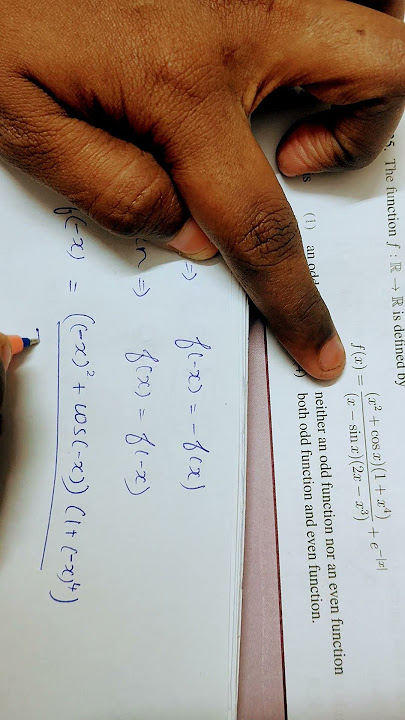 5. The function f : ℝ → ℝ is defined by
f(x) = (x² + cos x)(1 + x⁴) / (x − sin x)(2x − x³) + e^(−|x|)
(1) an odd
neither an odd function nor an even function
both odd function and even function.
⇒ f(-x) = -f(x)
⇒ f(x) = f(-x)
f(-x) = ((-x)² + cos(-x)) (1+(-x)⁴)